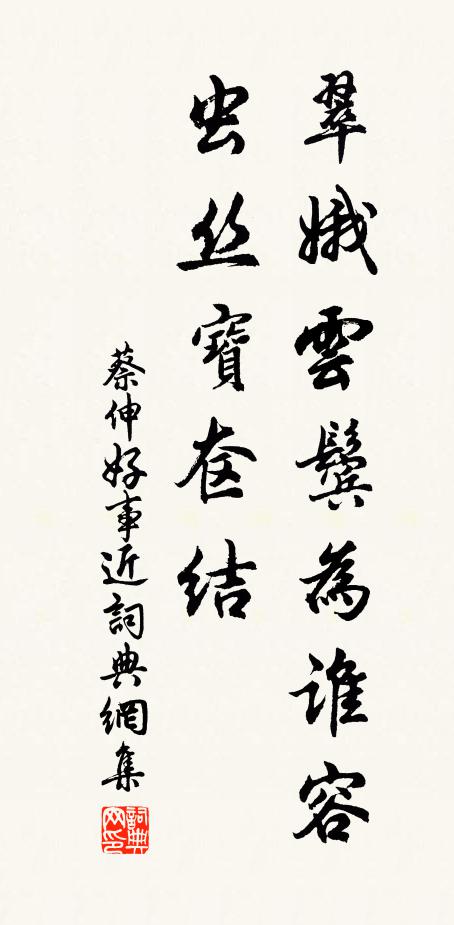 翠娥雲鬓為谁容
虫丝寶奁结
蔡伸好事近詞典網集
詞典网印